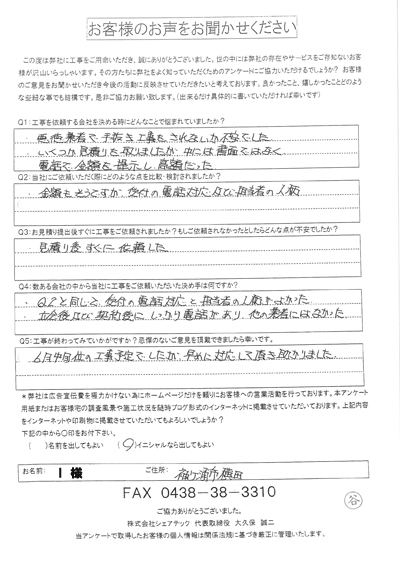 お客様のお声をお聞かせください
この度は弊社に工事をご用命いただき、誠にありがとうございました。世の中には弊社の存在やサービスをご存知ないお客様が沢山いらっしゃいます。その方たちに弊社をよく知っていただくためのアンケートにご協力いただけるでしょうか? お客様のご意見をお聞かせいただき今後の活動に反映させていただきたいと考えております。良かったこと、嬉しかったことどのような些細な事でも結構です。是非ご協力お願い致します。(出来るだけ具体的に書いていただければ幸いです)
Q1:工事を依頼する会社を決める時にどんなことで悩まれていましたか?
・悪徳業者で手抜き工事をされないか不安でした
・いくつか見積りを取りましたが、中には書面ではなく
電話で金額を提示し
Q2:当社にご依頼いただく際にどのような点を比較・検討されましたか?
・金額もそうですが、受付の電話対応及び担当者の人柄
Q3:お見積り提出後すぐに工事をご依頼されましたか?もしご依頼されなかったとしたらどんな点が不安でしたか?
・見積り後すぐに依頼した
Q4:数ある会社の中から当社に工事をご依頼いただいた決め手は何ですか?
・Q2と同じで受付の電話対応と担当者の人柄がよかった
・立会後及び契約後にしっかり電話があり、他の業者にはなかった
Q5:工事が終わってみていかがですか?忌憚のないご意見を頂戴できましたら幸いです。
・6月中旬位の工事予定でしたが、早めに対応して頂き助かりました。
*弊社は広告宣伝費を極力かけない為にホームページだけを頼りにお客様への営業活動を行っております。本アンケート用紙またはお客様宅の調査風景や施工状況を随時ブログ形式のインターネットに掲載させていただいております。上記内容をインターネットや印刷物に掲載させていただいてもよろしいでしょうか?
下記の中から〇印をお付下さい。
( )名前を出してもよい (○)イニシャルなら出してもよい
お名前: I 様 ご住所: 袖ケ浦市蔵波
FAX 0438-38-3310
谷
ご協力ありがとうございました。
株式会社シェアテック 代表取締役 大久保 誠二
当アンケートで取得したお客様の個人情報は関係法規に基づき厳正に管理いたします。